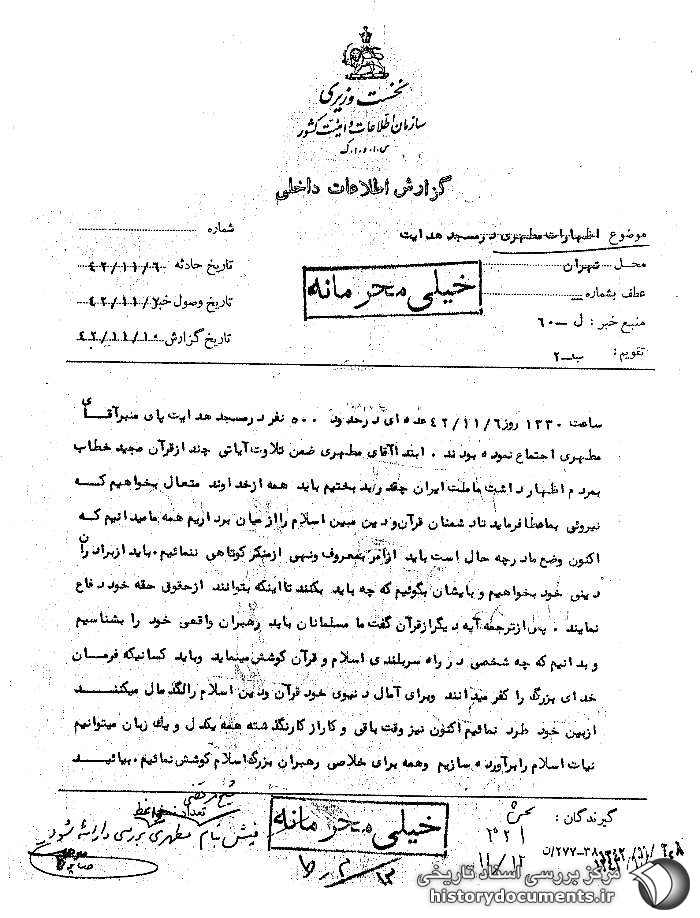 نخست وزیری
سازمان اطلاعات و امنیت کشور
س.ا.و.ا.ک
گزارش اطلاعات داخلی
موضوع اظهارات مطهری در مسجد هدایت
شماره
محل تهران
تاریخ حادثه ۴۲/۱۱/۶
خیلی محرمانه
عطف بشماره
تاریخ وصول خبر ۴۲/۱۱/۷
منبع خبر : ل – ۶۰
تاریخ گزارش ۴۲/۱۱/۱۰
تقویم : ب – ۲
ساعت ۱۳۳۰ روز ۴۲/۱۱/۶ عده ای در حدود ۵۰۰ نفر در مسجد هدایت پای منبر آقای
مطهری اجتماع نموده بودند . ابتدا آقای مطهری ضمن تلاوت آیاتی چند از قرآن مجید خطاب
بمردم اظهار داشت ما ملت ایران چقدر بد بختیم باید همه از خداوند متعال بخواهیم که
نیروئی بما عطا فرماید تا دشمنان قرآن و دین مبین اسلام را از میان برداریم همه ما میدانیم که
اکنون وضع ما در چه حال است باید از امر بمعروف و نهی از منکر کوتاهی ننمائیم . باید از برادران
دینی خود بخواهیم و بایشان بگوئیم که چه باید بکنند تا اینکه بتوانند از حقوق حقه خود دفاع
نمایند . پس از ترجمه آیه دیگر از قرآن گفت ما مسلمانان باید رهبران واقعی خود را بشناسیم
و بدانیم که چه شخصی در راه سربلندی اسلام و قرآن کوشش مینماید و باید کسانیکه فرمان
خدای بزرگ را کفر میدانند و برای آمال دنیوی خود قرآن و دین اسلام را لگدمال میکنند
از بین خود طرد نمائیم اکنون نیز وقت باقی و کار از کار نگذشته همه یکدل و یک زبان میتوانیم
نیات اسلام را برآورده سازیم و همه برای خلاصی رهبران بزرگ اسلام کوشش نمائیم . بیائید
گیرندگان :
بخش
۳۲۱
خیلی محرمانه
فیش بنام مطهری بررسی و ارائه شود
۱۱/۱۲
مرکز بررسی اسناد تاریخی
historydocuments.ir